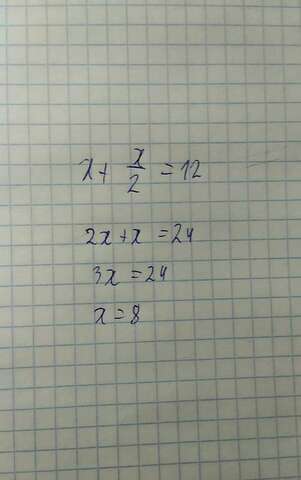 x + x/2 = 12
2x + x = 24
3x = 24
x = 8